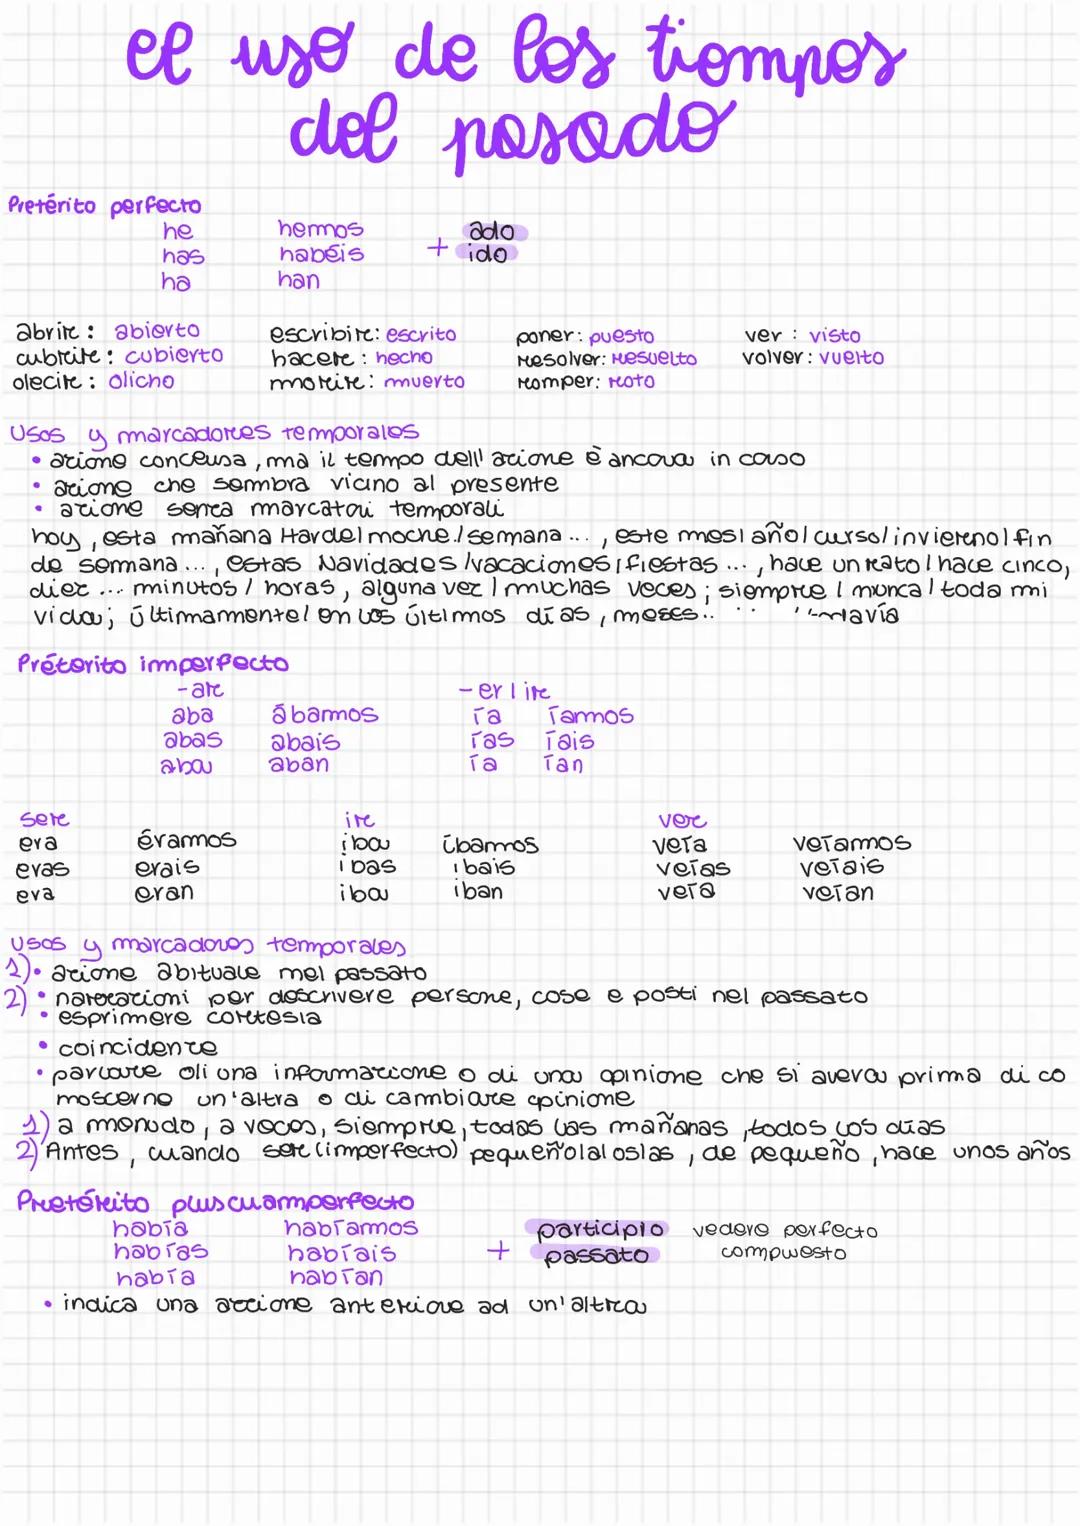 el uso de los tiempos
del pasado
Pretérito perfecto
he hemos + ado
has habéis ido
ha han
abrir: abierto escribir: escrito poner: puesto ver: visto
cubrir: cubierto hacer: hecho resolver: resuelto volver: vuelto
decir: dicho morir: muerto romper: roto
Usos y marcadores temporales
• azione conclusa, ma il tempo dell'azione è ancora in corso
• azione che sembra vicino al presente
• azione senza marcatori temporali
hoy, esta mañana/tarde/noche/semana..., este mes/año/curso/invierno/fin
de semana..., estas Navidades/vacaciones/fiestas..., hace un rato/hace cinco,
diez... minutos/horas, alguna vez/muchas veces; siempre/nunca/toda mi
vida; últimamente/en los últimos días, meses..
Pretérito imperfecto
-ar -er/ir
aba ábamos ía íamos
abas abais ías íais
aba aban ía ían
ser ir ver
era éramos iba íbamos veía veíamos
eras erais ibas ibais veías veíais
era eran iba iban veía veían
Usos y marcadores temporales
1) • azione abituale nel passato
2) • narrazioni per descrivere persone, cose e posti nel passato
• esprimere cortesia
• coincidenze
• parlare di una informazione o di una opinione che si aveva prima di co
noscerne un'altra o di cambiare opinione
1) a menudo, a veces, siempre, todas las mañanas, todos los días
2) Antes, cuando ser (imperfecto) pequeño/a/os/as, de pequeño, hace unos años
Pretérito pluscuamperfecto
había habíamos + participio vedere perfecto
habías habíais passato compuesto
había habían
• indica una azione anteriore ad un'altra